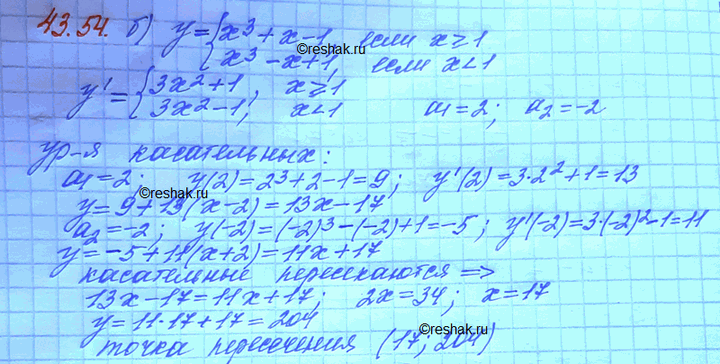 43.54. б) y = { x³ + x - 1, если x ≥ 1
©reshak.ru
x³ - x + 1, если x < 1
y' = { 3x² + 1, x ≥ 1
3x² - 1, x < 1 a₁ = 2; a₂ = -2
ур-я касательных:
a₁ = 2; y(2) = 2³ + 2 - 1 = 9; y'(2) = 3·2² + 1 = 13
©reshak.ru
y = 9 + 13(x - 2) = 13x - 17
a₂ = -2; y(-2) = (-2)³ - (-2) + 1 = -5; y'(-2) = 3·(-2)² - 1 = 11
y = -5 + 11(x + 2) = 11x + 17
касательные пересекаются ⇒
13x - 17 = 11x + 17; 2x = 34; x = 17
y = 11·17 + 17 = 204
©reshak.ru
точка пересечения (17; 204)